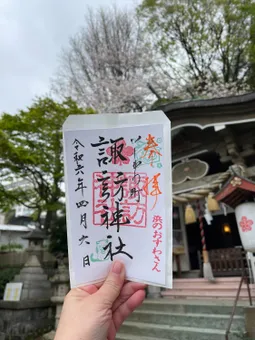 奉拝
浜のおすわさん
諏訪神社
令和六年四月六日